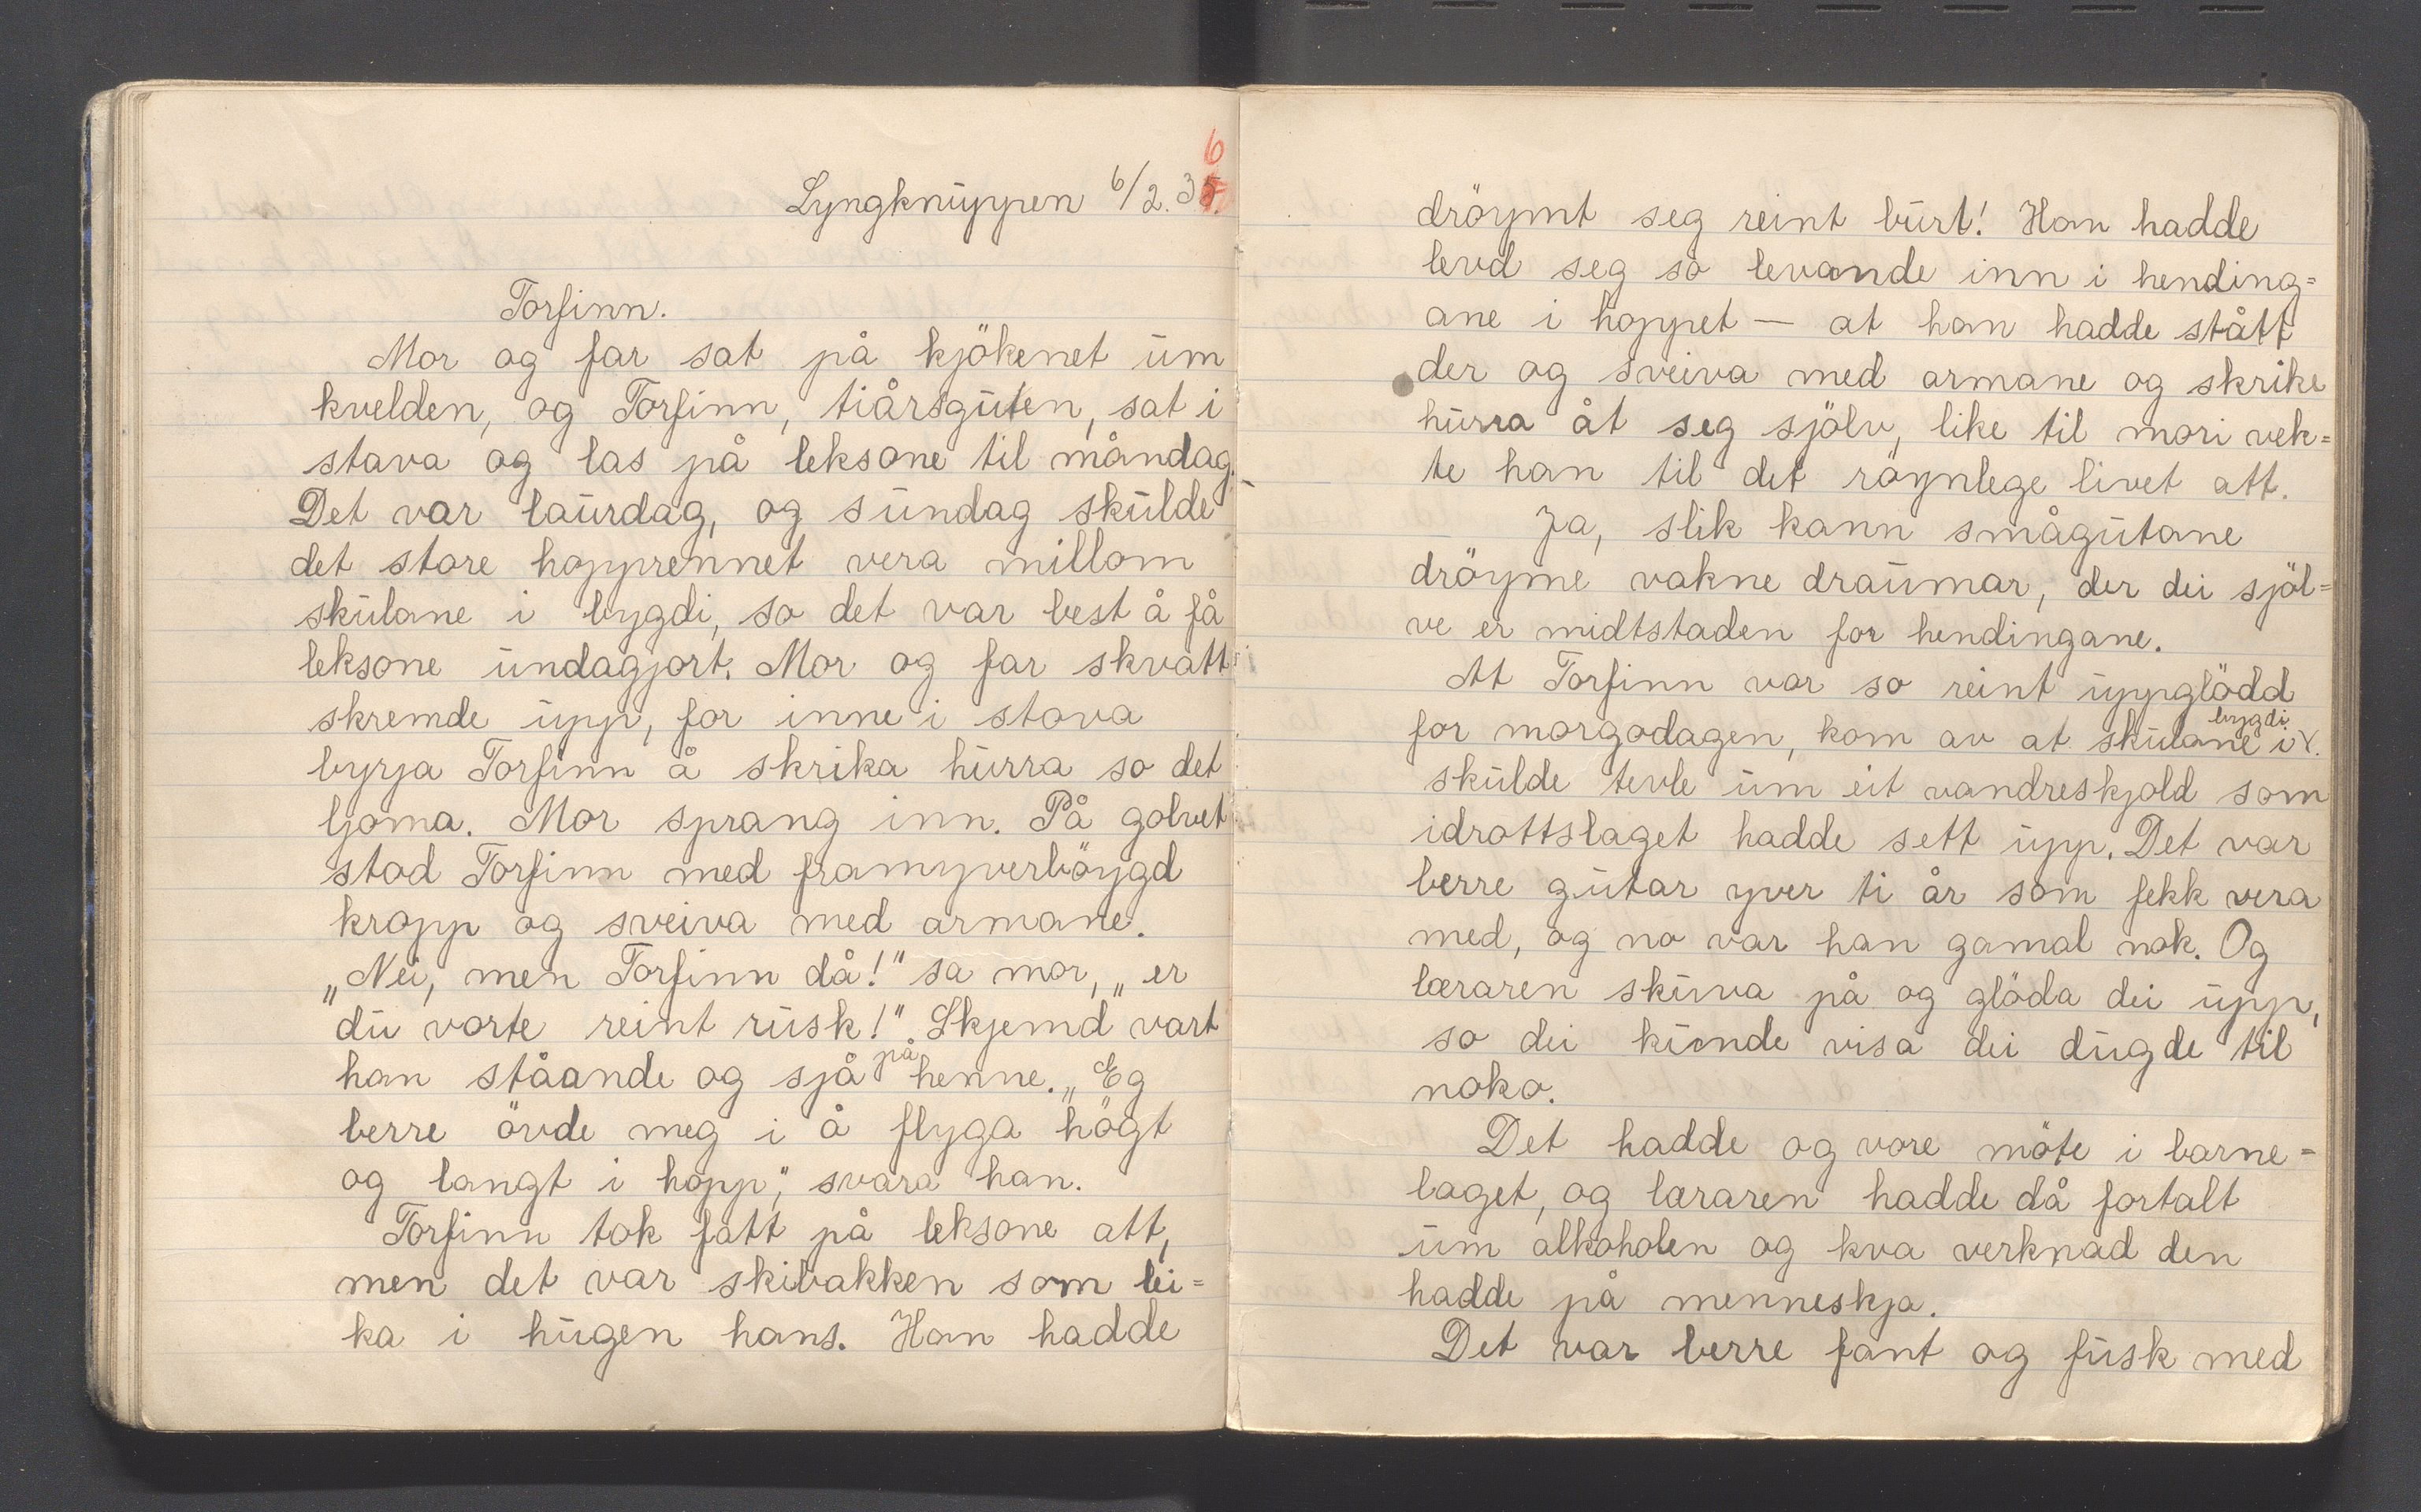 Lyngknuppen 6/2.35.
6
Torfinn.
Mor og far sat på kjökenet um
kvelden, og Torfinn, tiårsguten, sat i
stova og las på leksone til måndag.
Det var laurdag, og sundag skulde
det store hopprennet vera millom
skulane i bygdi, so det var best å få
leksone undagjort. Mor og far skvatt
skremde upp, for inne i stova
byrja Torfinn å skrika hurra so det
ljoma. Mor sprang inn. På golvet
stod Torfinn med framyverböygd
kropp og sveiva med armane.
„Nei, men Torfinn då!" sa mor, „er
du vorte reint rusk!" Skjemd vart
han ståande og sjå på henne. „Eg
berre övde meg i å flyga högt
og langt i hopp," svara han.
Torfinn tok fatt på leksone att,
men det var skibakken som lei=
ka i hugen hans. Han hadde
dröymt seg reint burt! Han hadde
levd seg so levande inn i hending=
ane i hoppet — at han hadde stått
der og sveiva med armane og skrike
hurra åt seg sjölv, like til mori vek=
te han til det röynlege livet att.
Ja, slik kann smågutane
dröyme vakne draumar, der dei sjöl=
ve er midtstaden for hendingane.
At Torfinn var so reint uppglödd
for morgodagen, kom av at skulane i bygdi
skulde tevle um eit vandreskjold som
idrottslaget hadde sett upp. Det var
berre gutar yver ti år som fekk vera
med, og no var han gamal nok. Og
læraren skuva på og glöda dei upp,
so dei kunde visa dei dugde til
noko.
Det hadde og vore möte i barne=
laget, og læraren hadde då fortalt
um alkoholen og kva verknad den
hadde på menneskja.
Det var berre fant og fusk med